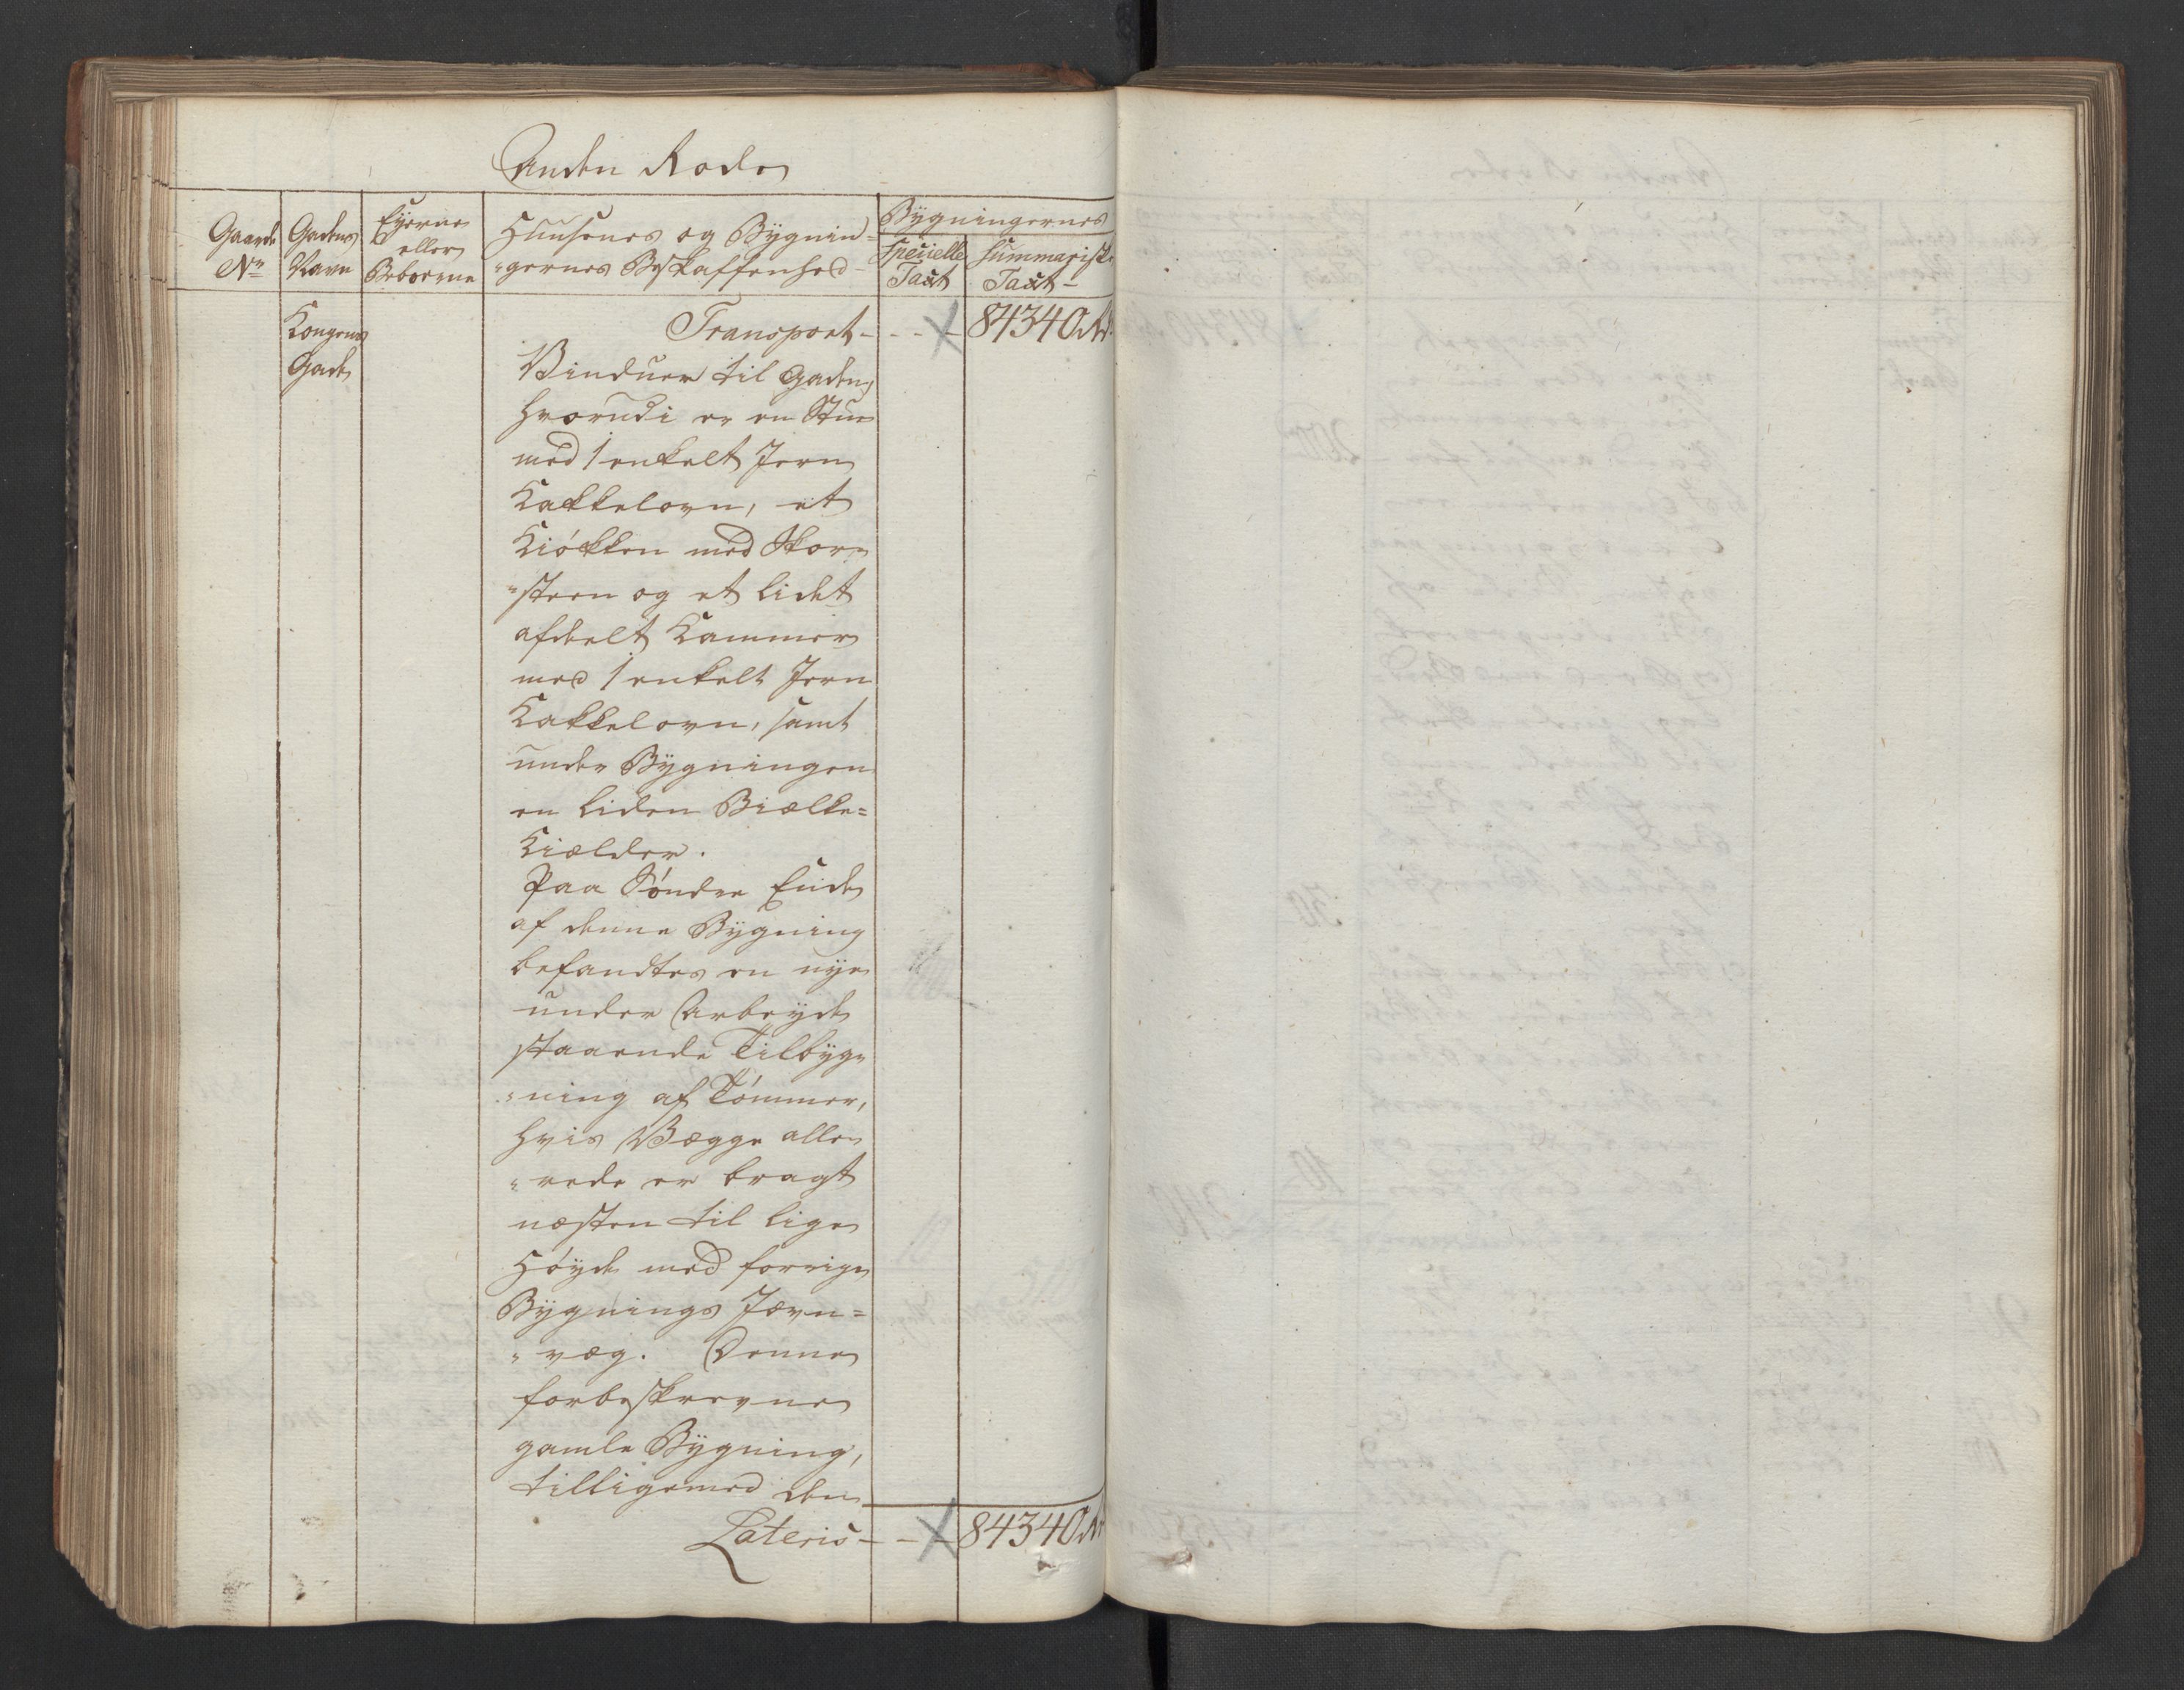 Anden Rode
Gaards No
Gadens Navn
Eyerne eller Beboerne
Huusenes og Bygnin-
-gernes Beskaffenhed
Bygningernes
specielle Taxt
summariske Taxt
Kongens
Gade
Transport - - - 84340 Rd
Vinduer til Gaden,
hvorudi er en Stue
med 1 enkelt Jern
Kakkelovn, et
Kiøkken med Skor-
-steen og et lidet
afdeelt Kammer
med 1 enkelt Jern
Kakkelovn, samt
under Bygningen
en liden Biælke-
Kiælder.
Paa Søndre Ende
af denne Bygning
befandtes en nye
under Arbeyde
staaende Tilbyg-
-ning af Tømmer,
hvis Vægge alle-
-rede er bragt
næsten til lige
Høyde med forrige
Bygnings Jævn-
-væg. Denne
forbeskrevne
gamle Bygning,
tilligemed den
Lateris - - - 84340 Rd